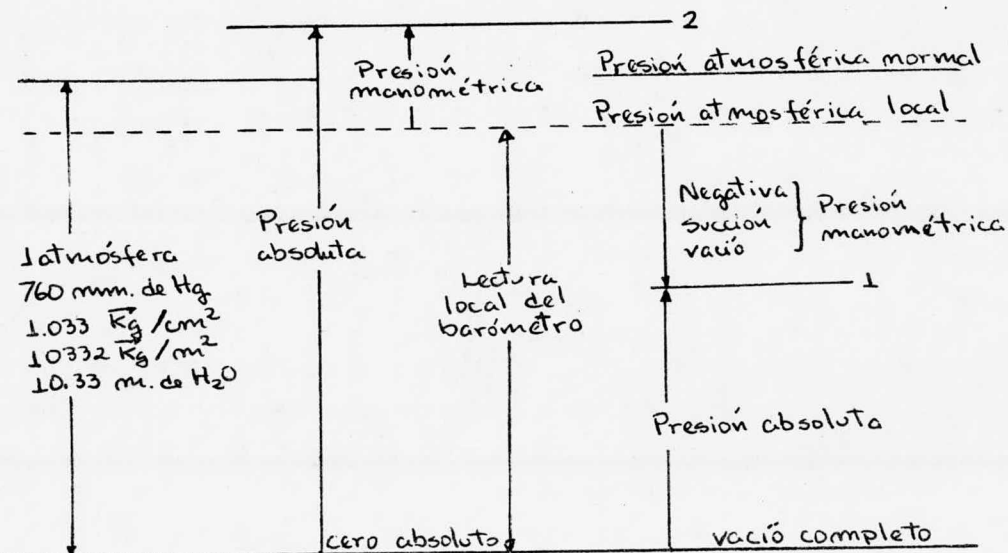 2
Presión
manométrica
Presión atmosférica normal
Presión atmosférica local
1 atmósfera
760 mm. de Hg
1.033 Kg/cm²
10332 Kg/m²
10.33 m. de H₂O
Presión
absoluta
Lectura
local del
barómetro
Negativa
succión
vació
Presión
manométrica
1
Presión absoluta
cero absoluto
vació completo